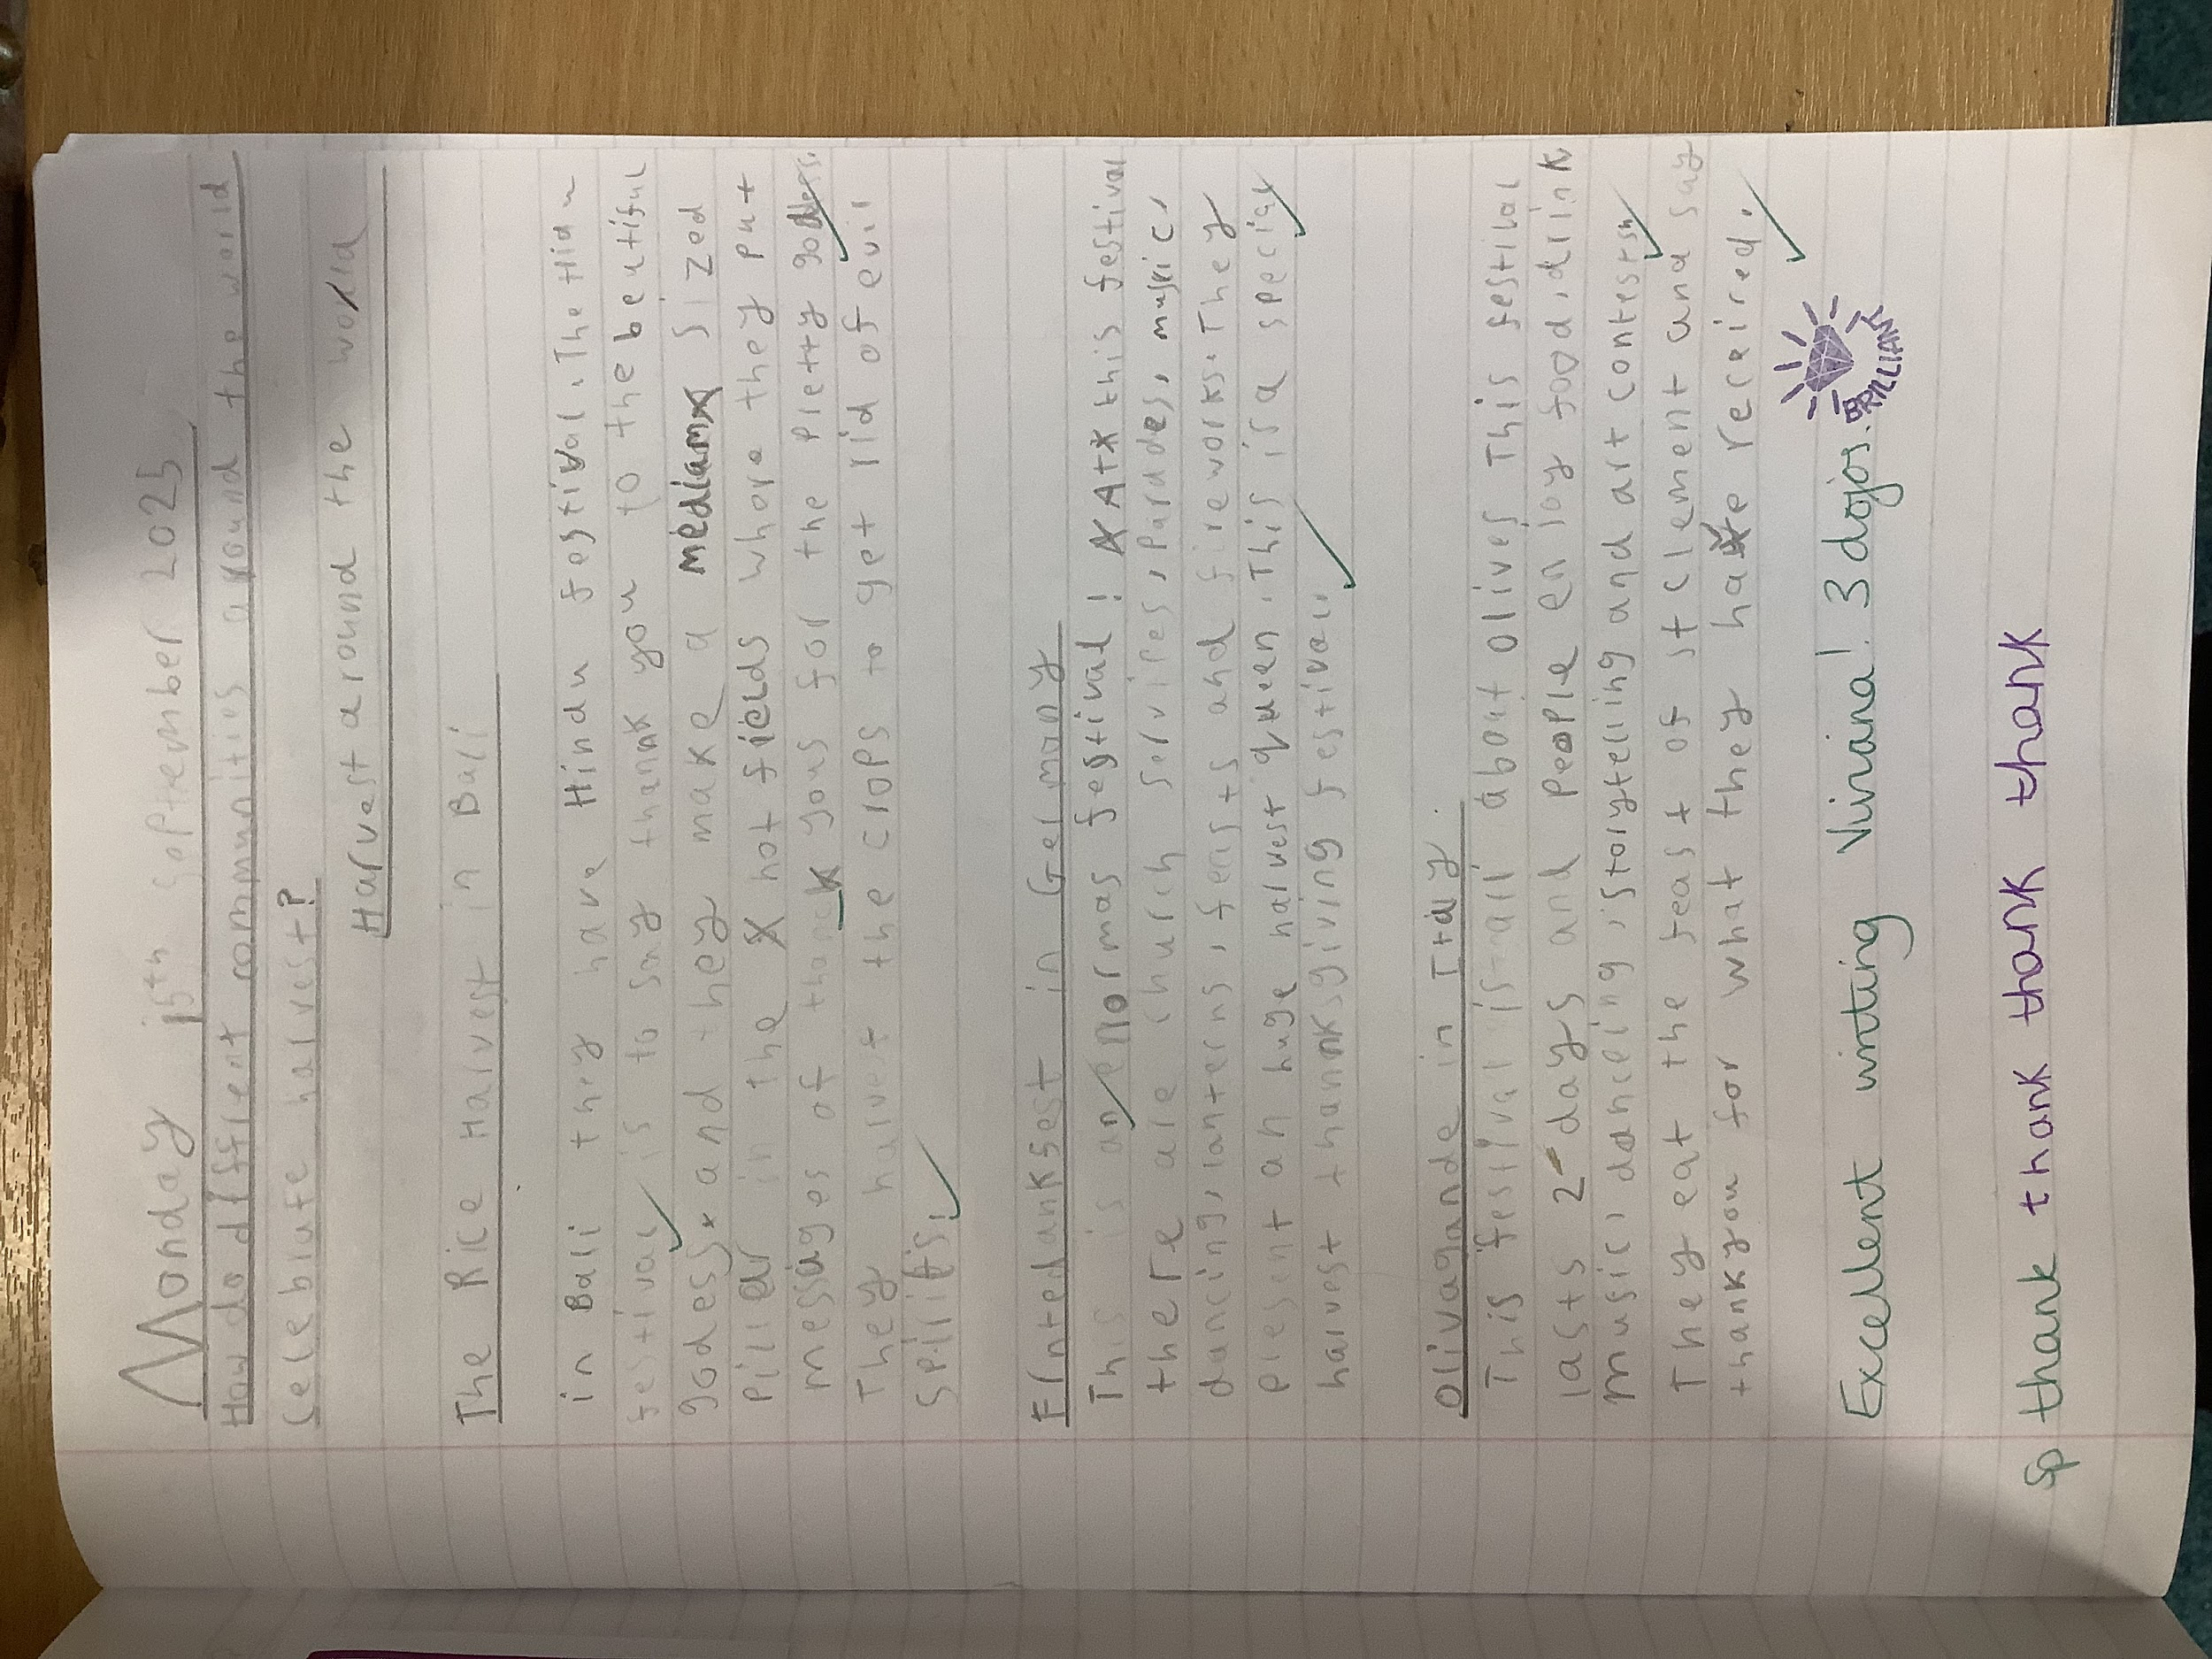 Monday 15th September 2025
How do diffrent communities around the world
celebrate harvest?
Harvest around the world
The Rice Harvest in Bali
in Bali they have Hindu festival. The Hidu
festival is to say thank you to the beutiful
godess and they make a mediam sized
piller in the hot fields where they put
messages of thank yous for the pretty goddess.
They harvest the crops to get rid of evil
spirits.
Erntedankfest in Germany
This is an enormas festival! At this festival
there are church services, parades, music,
dancing, lanterns, feasts and fireworks. They
present an huge harvest queen. This is a special
harvest thanksgiving festival.
Olivagande in Italy
This festival is all about olives This festival
lasts 2 days and people enjoy food, drink
music, dancing, storytelling and art contests.
They eat the feast of st clement and say
thankyou for what they have received.
BRILLIANT
Excellent writing Viviana! 3 dojos.
Sp thank thank thank thank thank